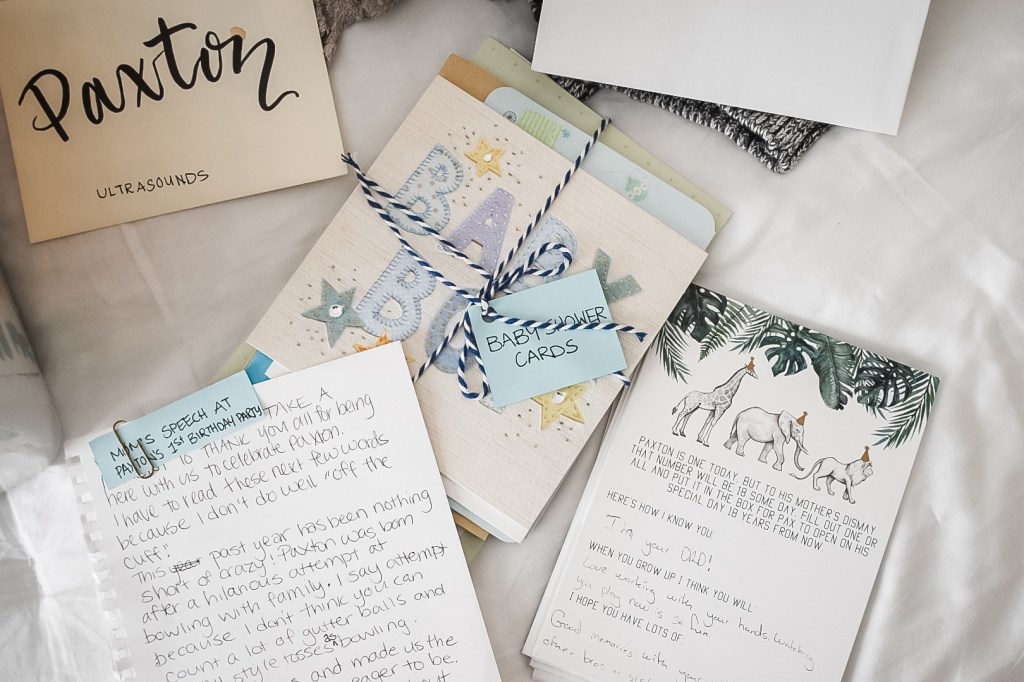 Paxton
ULTRASOUNDS
BABY
BOY
BABY SHOWER
CARDS
MOM'S SPEECH AT
PAXTON'S 1ST BIRTHDAY PARTY
TAKE A
TO THANK YOU all for being
here with us to celebrate Paxton
I have to read these next few words
because I don't do well "off the
cuff."
This past year has been nothing
short of crazy! Paxton was born
after a hilarious attempt at
bowling with family. I say attempt
because I don't think you can
count a lot of gutter balls and
style tosses as bowling.
and made us the
eager to be.
PAXTON IS ONE TODAY. BUT TO HIS MOTHER'S DISMAY
THAT NUMBER WILL BE 18 SOME DAY. FILL OUT ONE OR
ALL AND PUT IT IN THE BOX FOR PAX TO OPEN ON HIS
SPECIAL DAY 18 YEARS FROM NOW.
HERE'S HOW I KNOW YOU:
I'm your DAD!
WHEN YOU GROW UP I THINK YOU WILL:
Love working with your hands. Watching
you play now is so fun
I HOPE YOU HAVE LOTS OF:
Good memories with your
other bros or